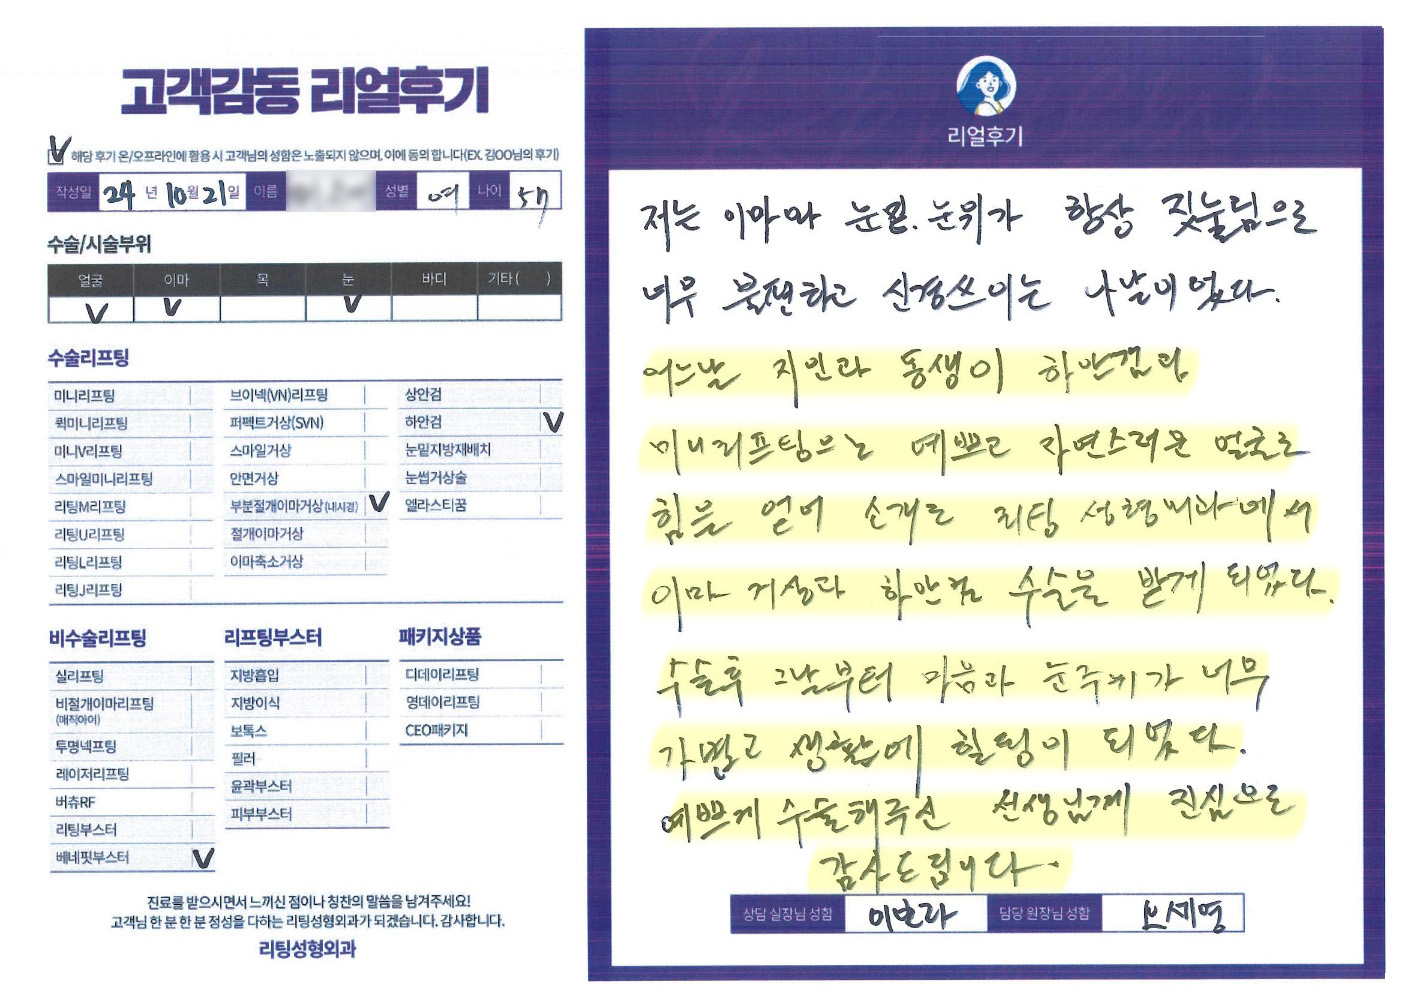 고객감동 리얼후기
해당 후기 온/오프라인에 활용 시 고객님의 성함은 노출되지 않으며, 이에 동의 합니다(EX. 김OO님의 후기)
작성일 24년 10월 21일 이름 성별 여 나이 57
수술/시술부위
얼굴 이마 목 눈 바디 기타( )
V V V
수술리프팅
미니리프팅 브이넥(VN)리프팅 상안검
퀵미니리프팅 퍼펙트거상(SVN) 하안검 V
미니V리프팅 스마일거상 눈밑지방재배치
스마일미니리프팅 안면거상 눈썹거상술
리팅M리프팅 부분절개이마거상(내시경) V 엘라스티꿈
리팅U리프팅 절개이마거상
리팅L리프팅 이마축소거상
리팅J리프팅
비수술리프팅 리프팅부스터 패키지상품
실리프팅 지방흡입 디데이리프팅
비절개이마리프팅 지방이식 영데이리프팅
(매직아이)
투명넥프팅 보톡스 CEO패키지
레이저리프팅 필러
버츄RF 윤곽부스터
리팅부스터 피부부스터
베네핏부스터 V
진료를 받으시면서 느끼신 점이나 칭찬의 말씀을 남겨주세요!
고객님 한 분 한 분 정성을 다하는 리팅성형외과가 되겠습니다. 감사합니다.
리팅성형외과
리얼후기
저는 이마와 눈밑. 눈위가 항상 짓눌림으로
너무 불편하고 신경쓰이는 나날이었다.
어느날 지인과 동생이 하안검과
미니리프팅으는 예쁘고 자연스러운 얼굴로
힘을 얻어 소개로 리팅 성형외과에서
이마 거상과 하안검 수술을 받게 되었다.
수술후 그날부터 마음과 눈주위가 너무
가볍고 생활에 힐링이 되었다.
예쁘게 수술해주신 선생님께 진심으로
감사드립니다.
상담 실장님 성함 이보라 담당 원장님 성함 오세영